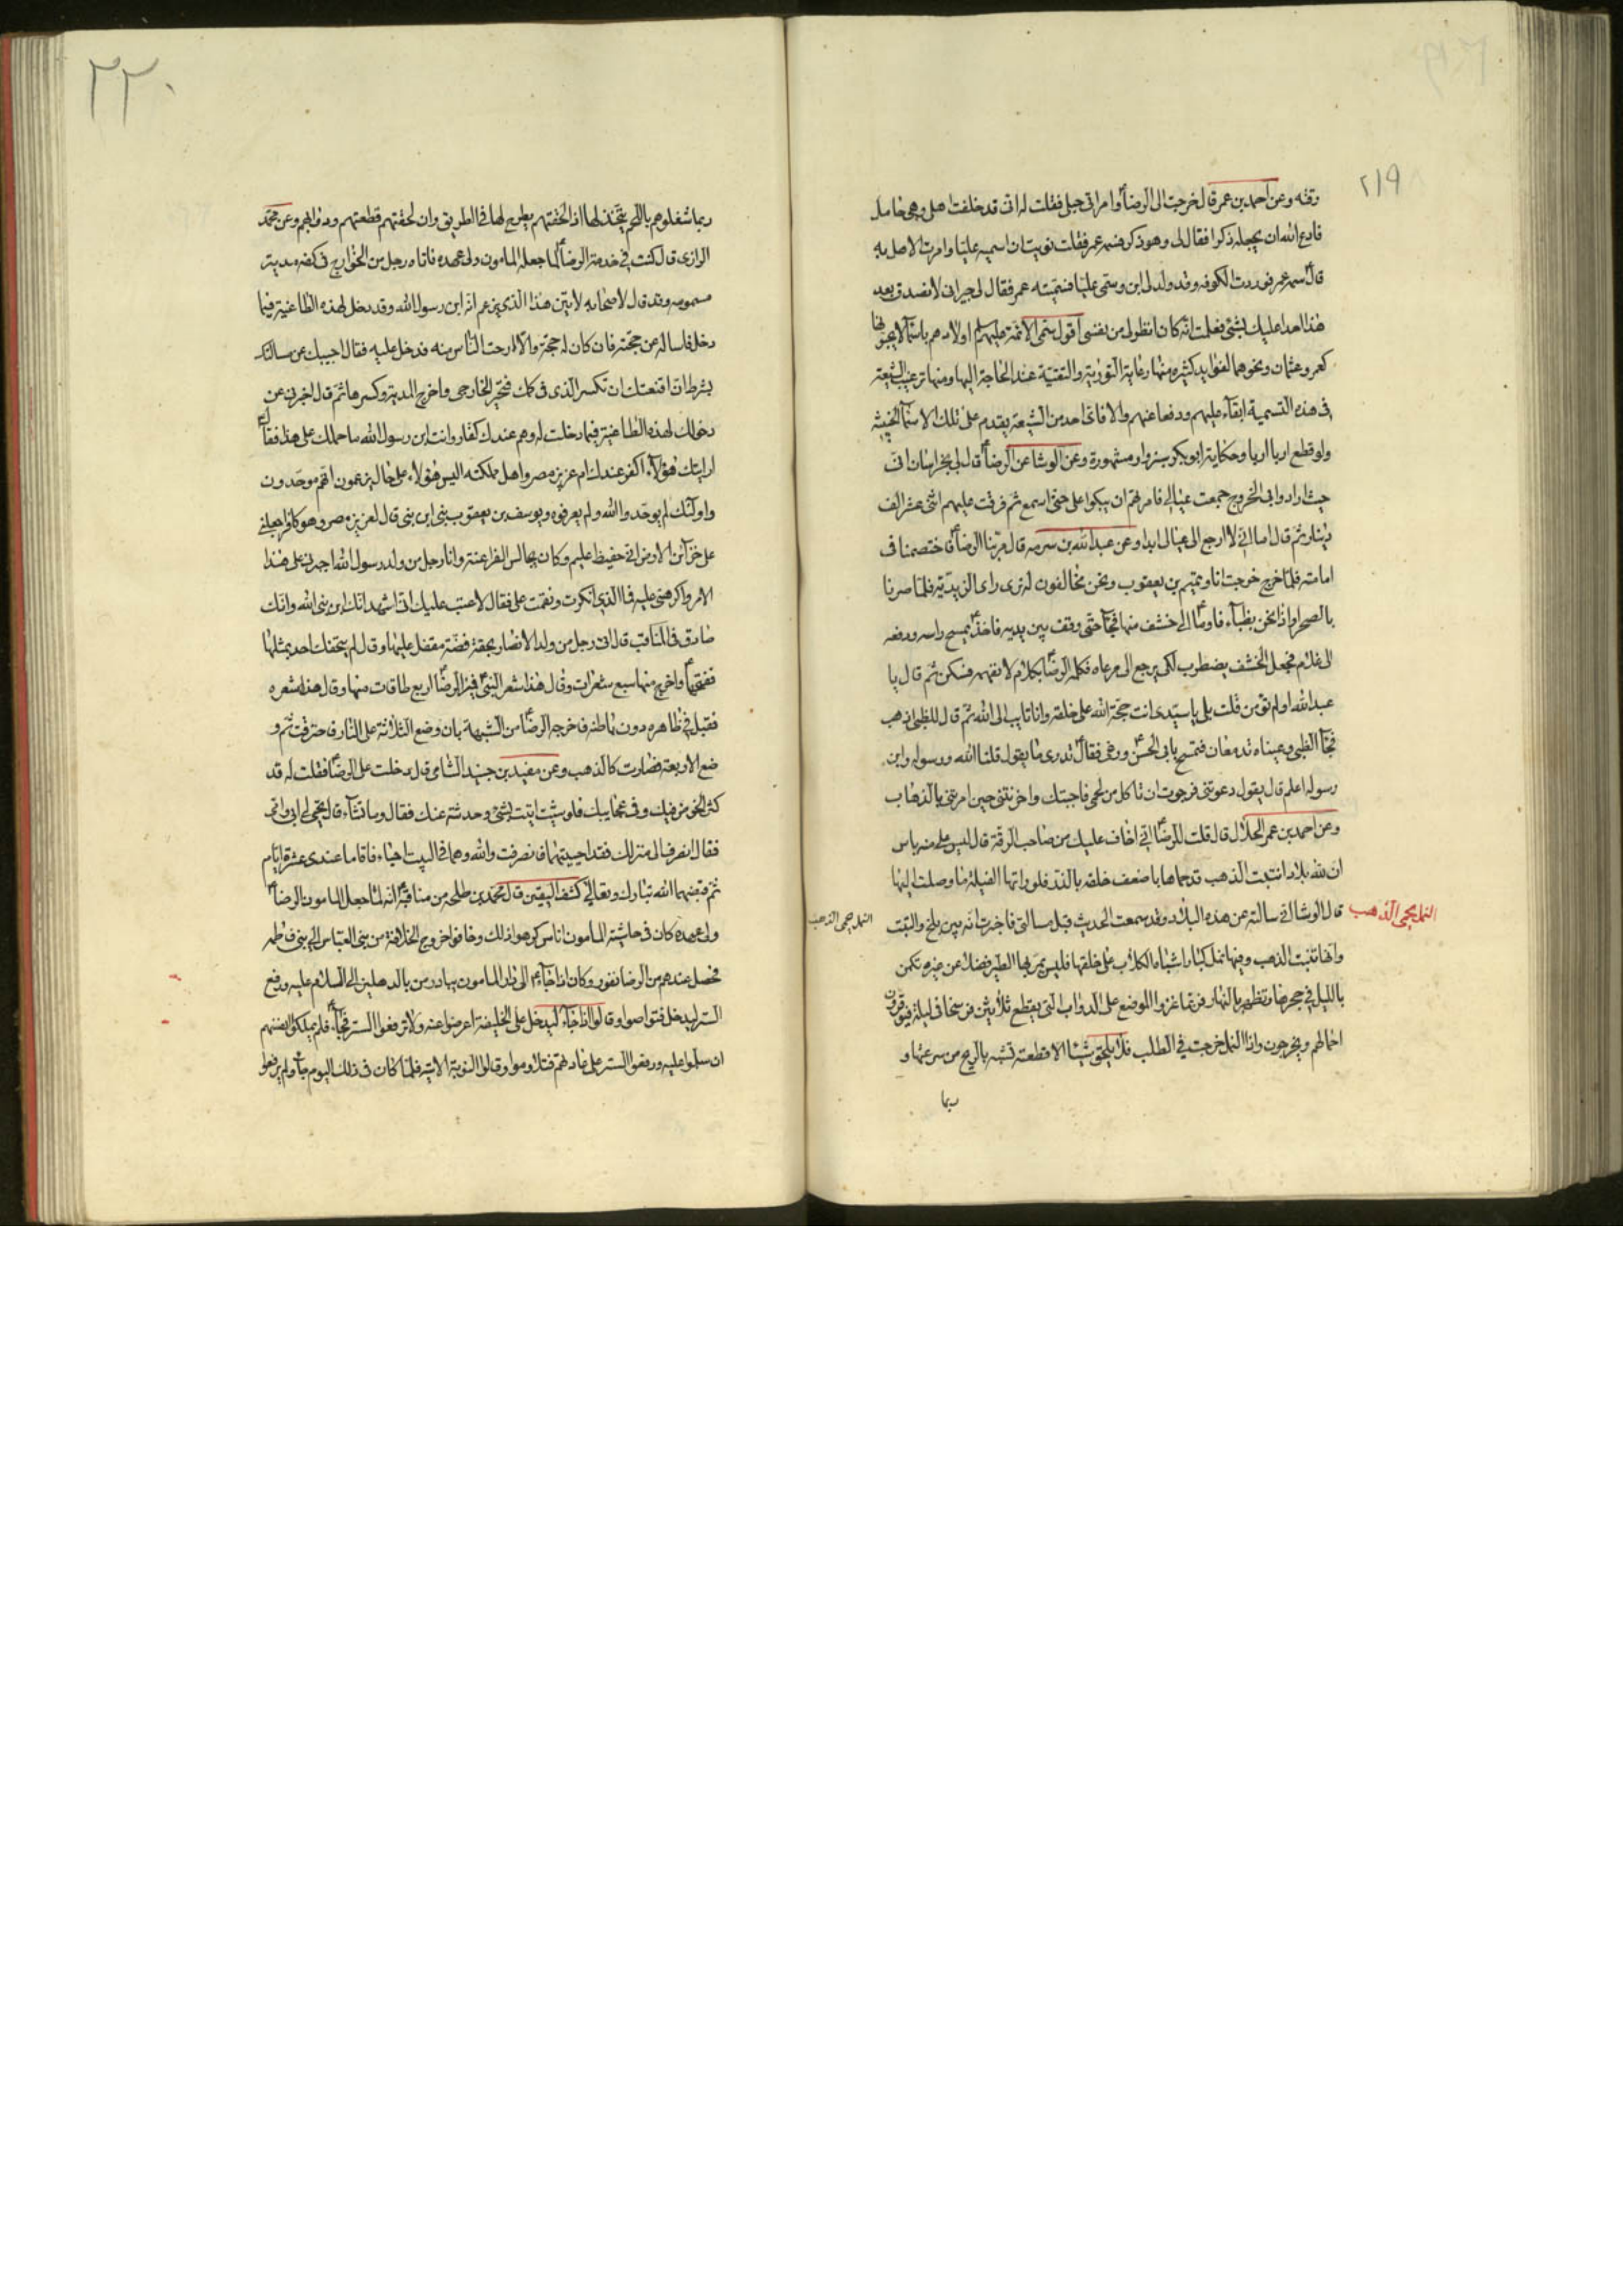 ٢١٩
رقته وعن احمد بن عمر قال خرجت الى الرضا ع وامراتى حبلى فقلت له انى قد خلفت اهلى وهى حامل
فادع الله ان يجعله ذكرا فقال لى وهو ذكر فسمه عمر فقلت نويت ان اسميه عليا وامرت الاهل به
قال ع سمه عمر فوردت الكوفه وقد ولد لى ابن وسمى عليا فسميته عمر فقال لى جيرانى لا نصدق بعد
هذا احدا عليك بشئ فعلمت انه كان انظر لى من نفسى اقول سمى الائمة عليهم السلم اولادهم باسماء
كعمر وعثمان ونحوهما لفوايد كثيره منها رعاية التورية والتقية عند الحاجة اليها ومنها ترغيب الشيعة
فى هذه التسمية ابقاء عليهم ودفعا عنهم والا فانى احد من الشيعة يقدم على تلك الاسماء الخبيثه
ولو قطع اربا اربا وحكاية ابو بكر سبزوار مشهورة وعن الوشا عن الرضا ع قال لى بخراسان انى
حيث ارادوا بى الخروج جمعت عيالى فامرتهم ان يبكوا على حتى اسمع ثم فرقت عليهم اثنى عشر الف
دينار ثم قال اما انى لا ارجع الى عيالى ابدا وعن عبد الله بن سرمه قال مر بنا الرضا ع فاختصمنا فى
امامته فلما خرج خرجت انا وتميم بن يعقوب ونحن مخالفون له نرى راى الزيدية فلما صرنا
بالصحراء واذا نحن بظباء فاوما ع الى خشف منها فجاء حتى وقف بين يديه فاخذ ع يمسح راسه ودفعه
الى غلامه فجعل الخشف يضطرب لكى يرجع الى مرعاه فكلمه الرضا ع بكلام لا نفهمه فسكن ثم قال يا
عبد الله اولم تؤمن قلت بلى يا سيدى انت حجة الله على خلقه وانا تايب الى الله ثم قال للظبى اذهب
فجاء الظبى وعيناه تدمعان فتمسح بابى الحسن ع ورغى فقال ع تدرى ما يقول قلنا الله ورسوله وابن
رسوله اعلم قال يقول دعوتنى فرجوت ان تاكل من لحمى فاجبتك واحزنتنى حين امرتنى بالذهاب
وعن احمد بن عمر الحلال قال قلت للرضا ع انى اخاف عليك من صاحب الرقة قال ليس على منه باس
ان لله بلادا تنبت الذهب قد حماها باضعف خلقه بالذر فلو اراتها الفيلة ما وصلت اليها
النمل يحمى الذهب
قال الوشا انى سالته عن هذه البلاد وقد سمعت الحديث قبل مسالتى فاخبرت انه بين بلخ والتبت
النمل يحمى الذهب
وانها تنبت الذهب وفيها نمل كبار اشباه الكلاب على خلقها فليس يمر بها الطير فضلا عن غيره تكمن
بالليل فى جحرها وتظهر بالنهار فربما غزوا الموضع على الدواب التى يقطع ثلاثين فرسخا فى ليلة فيوقرون
احمالهم ويخرجون واذا النمل خرجت فى الطلب فلا يلحق شيئا الا قطعته تشبه بالريح من سرعتها و
ربما
٢٢٠
ربما شغلوهم باللحم يتخذ لها اذا لحقتهم يطرح لها فى الطريق وان لحقتهم قطعتهم ودوابهم وعن محمد
الرازى قال كنت فى خدمة الرضا ع لما جعله المامون ولى عهده فاتاه رجل من الخوارج فى كفه مدية
مسمومه وقد قال لاصحابه لاتين هذا الذى يزعم انه ابن رسول الله وقد دخل لهذه الطاغية فيما
دخل فاساله عن حجته فان كان له حجة والا ارحت الناس منه فدخل عليه فقال اجيبك عن مسالتك
بشرط ان اقنعتك ان تكسر الذى فى كمك فتحير الخارجى واخرج المدية وكسرها ثم قال اخبرنى عن
دخولك لهذه الطاغية فيما دخلت له وهم عندك كفار وانت ابن رسول الله ما حملك على هذا فقال ع
ارايتك هؤلاء اكفر عندك ام عزيز مصر واهل مملكته اليس هؤلاء على حال يزعمون انهم موحدون
واولئك لم يوحدوا الله ولم يعرفوه ويوسف بن يعقوب نبى ابن نبى قال لعزيز مصر وهو كافر اجعلنى
على خزائن الارض انى حفيظ عليم وكان يجالس الفراعنة وانا رجل من ولد رسول الله اجبرنى على هذا
الامر واكرهنى عليه فما الذى انكرت ونقمت على فقال لا عتب عليك انى اشهد انك ابن نبى الله وانك
صادق فى المناقب قال اتى رجل من ولد الانصار بحقة فضة مقفل عليها وقال لم يتحفك احد بمثلها
ففتحها ع واخرج منها سبع شعرات وقال هذا شعر النبى ص فميز الرضا ع اربع طاقات منها وقال هذا شعره
فقبل فى ظاهره دون باطنه فاخرجه الرضا ع من الشبهة بان وضع الثلاثة على النار فاحترقت ثم و
ضع الاربعة فصارت كالذهب وعن مفيد بن جنيد الشامى قال دخلت على الرضا ع فقلت له قد
كثر الخوض فيك وفى عجايبك فلو شئت اتيت بشئ وحدثته عنك فقال وما تشاء قال تحيى لى ابى وامى
فقال انصرف الى منزلك فقد احييتهما فانصرفت والله وهما فى البيت احياء فاقاما عندى عشرة ايام
ثم قبضهما الله تبارك وتعالى كشف اليقين قال محمد بن طلحه من مناقبه ع انه لما جعل المامون الرضا ع
ولى عهده كان فى حاشية المامون اناس كرهوا ذلك وخافوا خروج الخلافة من بنى العباس الى بنى فاطمه
فحصل عندهم من الرضا نفور وكان اذا جاء ع الى دار المامون يبادر من بالدهليز الى السلام عليه ورفع
الستر ليدخل فتواصوا وقالوا اذا جاء ليدخل على الخليفة اعرضوا عنه ولا ترفعوا الستر فجاء ع فلم يملكوا انفسهم
ان سلموا عليه ورفعوا الستر على عادتهم فتلاوموا وقالوا النوبة الاتية فلما كان فى ذلك اليوم جاء ع ولم يرفعوا